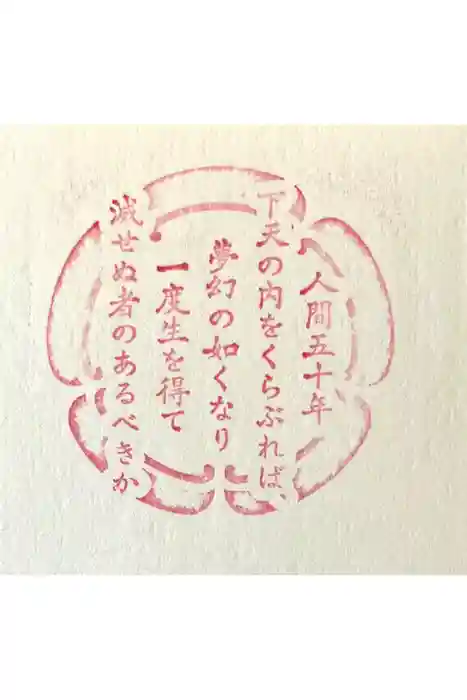 人間五十年
下天の内をくらぶれば、
夢幻の如くなり
一度生を得て
滅せぬ者のあるべきか